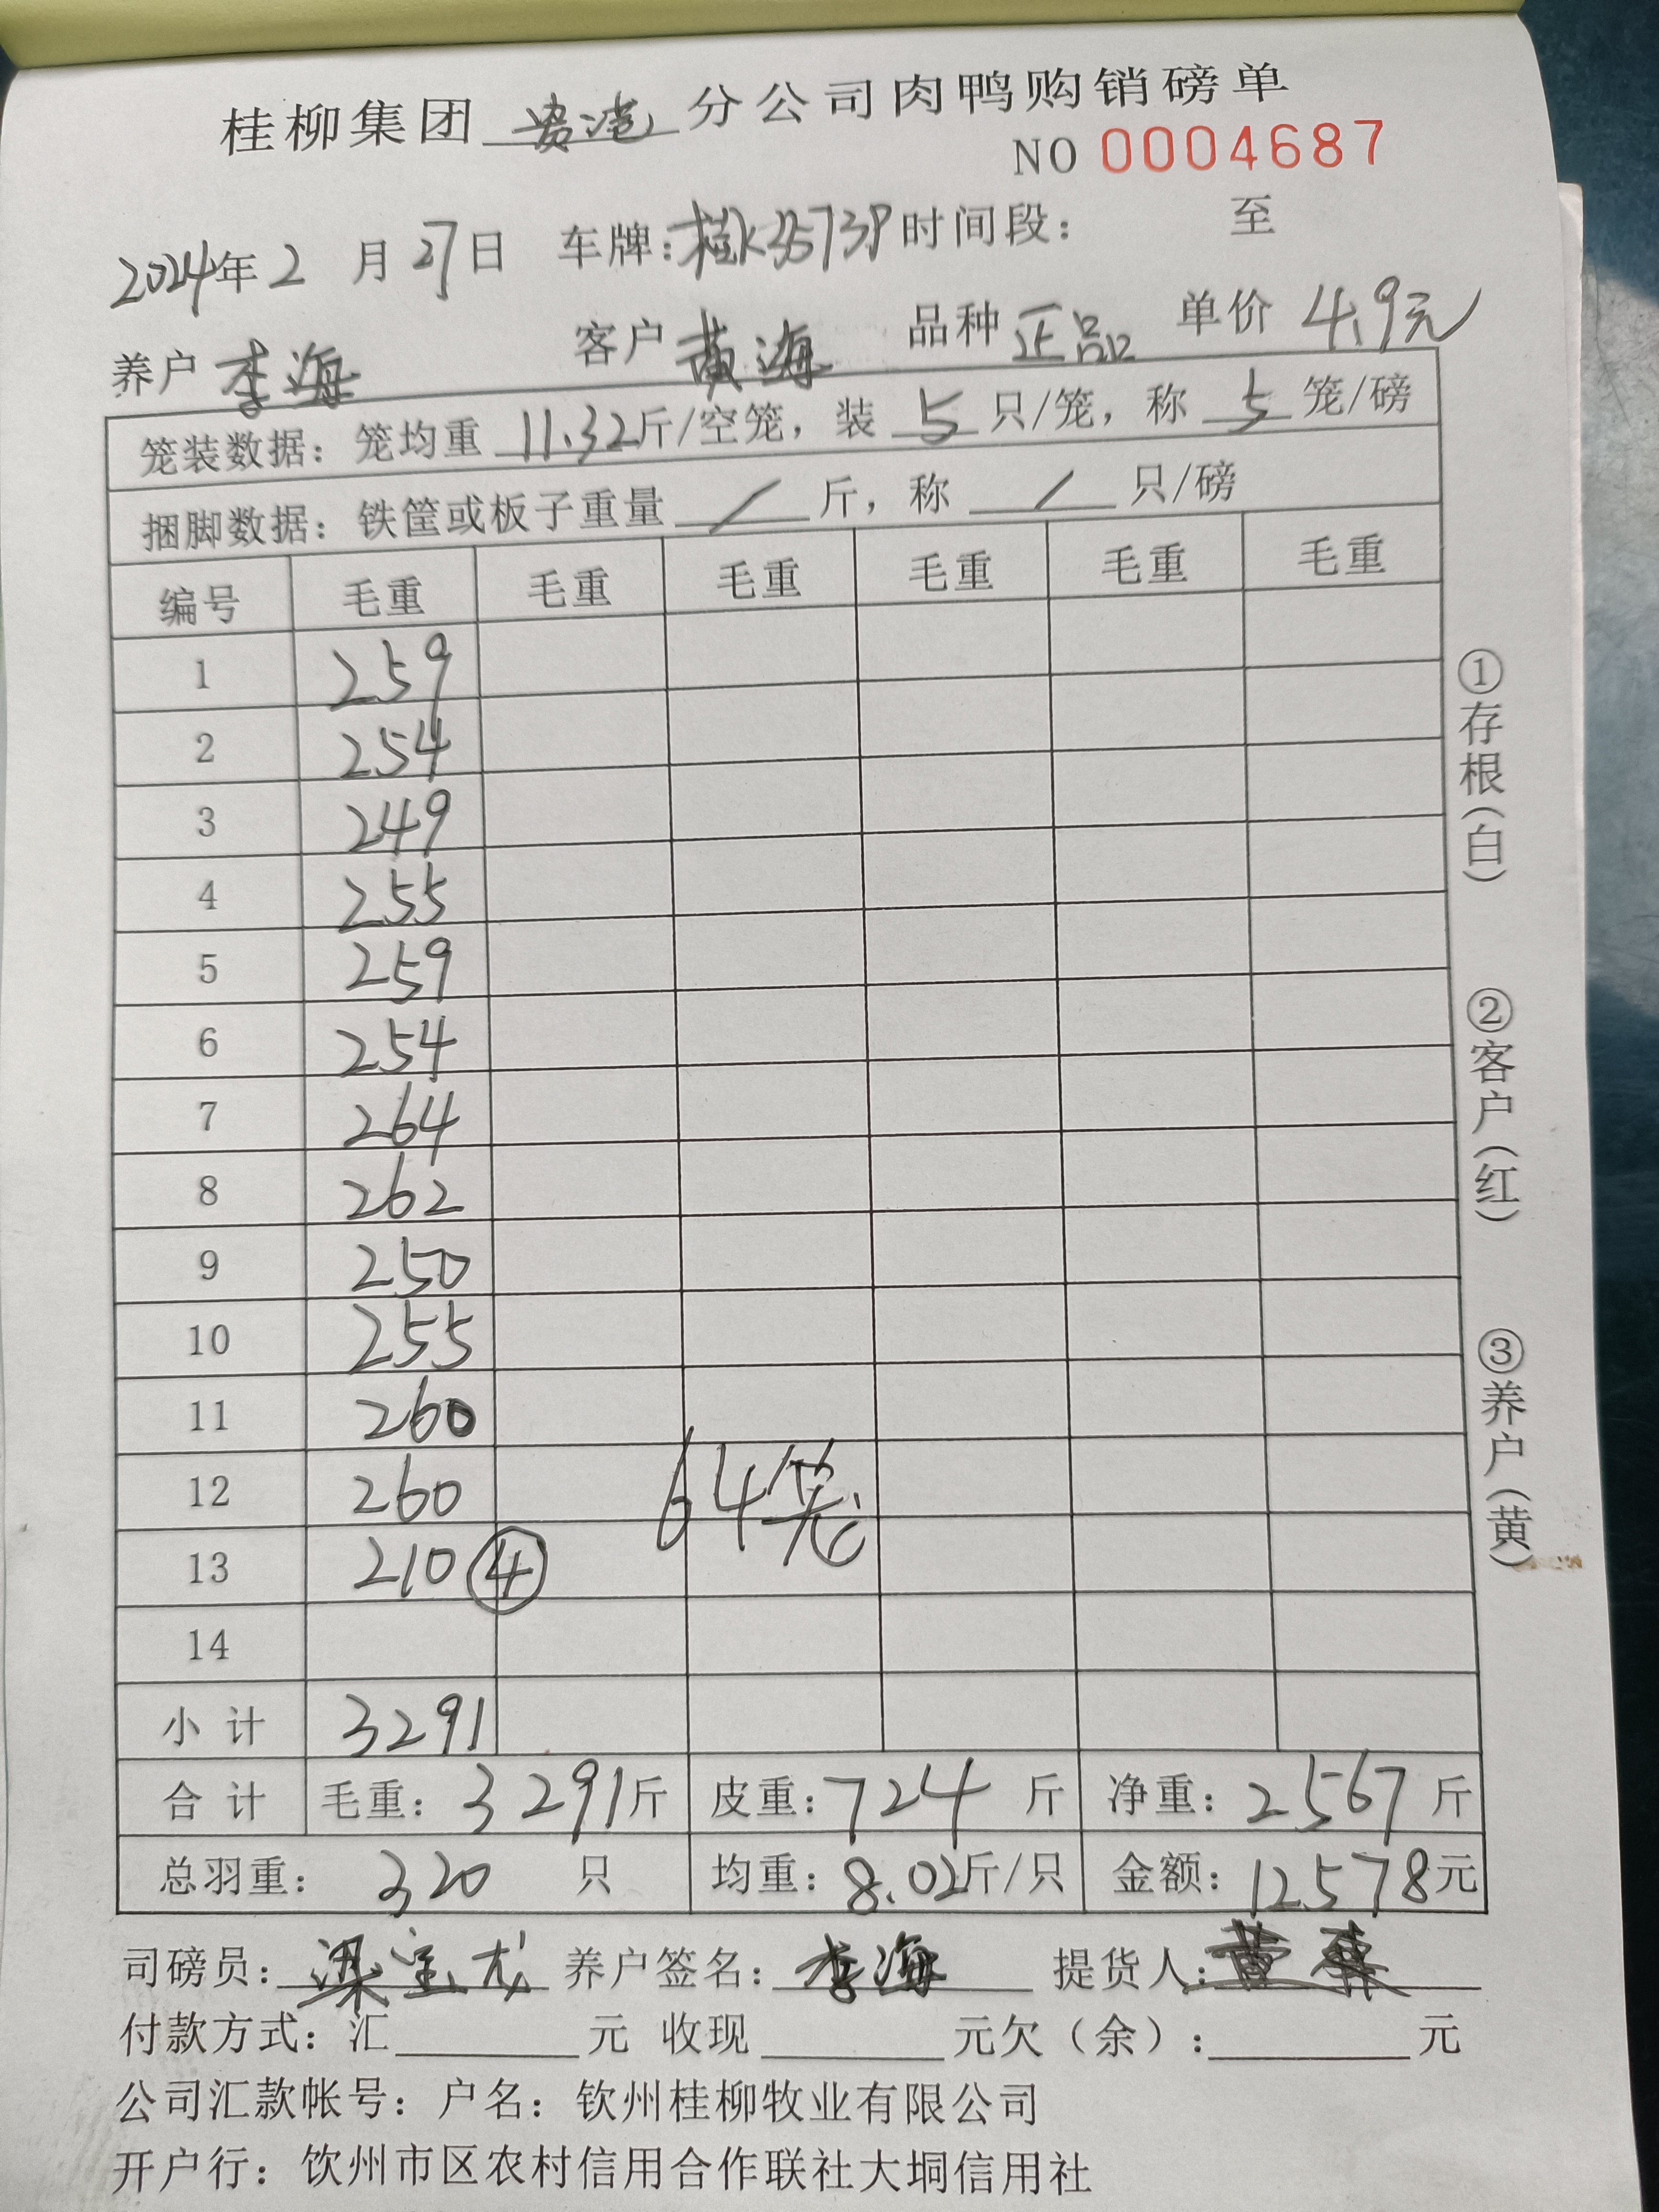 桂柳集团 贵港 分公司肉鸭购销磅单
NO 0004687
2024年2月27日 车牌:桂K35739 时间段: 至
养户 李海 客户 黄海 品种 正品 单价 4.9元
笼装数据: 笼均重 11.32斤/空笼, 装 5 只/笼, 称 5 笼/磅
捆脚数据: 铁筐或板子重量 / 斤, 称 / 只/磅
编号 毛重 毛重 毛重 毛重 毛重 毛重
1 259
2 254
3 249
4 255
5 259
6 254
7 264
8 262
9 250
10 255
11 260
12 260 64笼
13 210 ④
14
小计 3291
合计 毛重: 3291斤 皮重: 724 斤 净重: 2567 斤
总羽重: 320 只 均重: 8.02斤/只 金额: 12578元
司磅员: 梁宝龙 养户签名: 李海 提货人:
付款方式: 汇 元 收现 元欠(余): 元
公司汇款帐号: 户名: 钦州桂柳牧业有限公司
开户行: 钦州市区农村信用合作联社大垌信用社
①存根(白)
②客户(红)
③养户(黄)